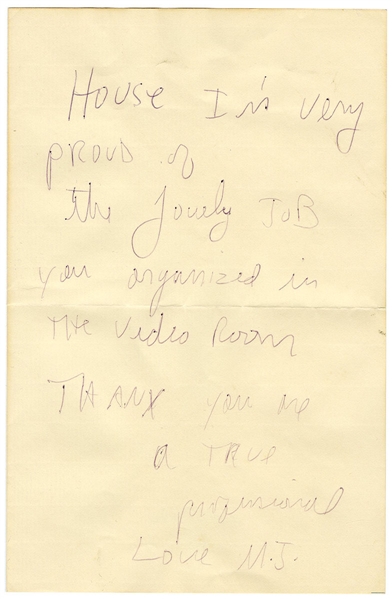 House I is very
PROUD of
the lovely JOB
you organized in
THE Video Room
THANX you are
a TRUE
professional
Love M.J.